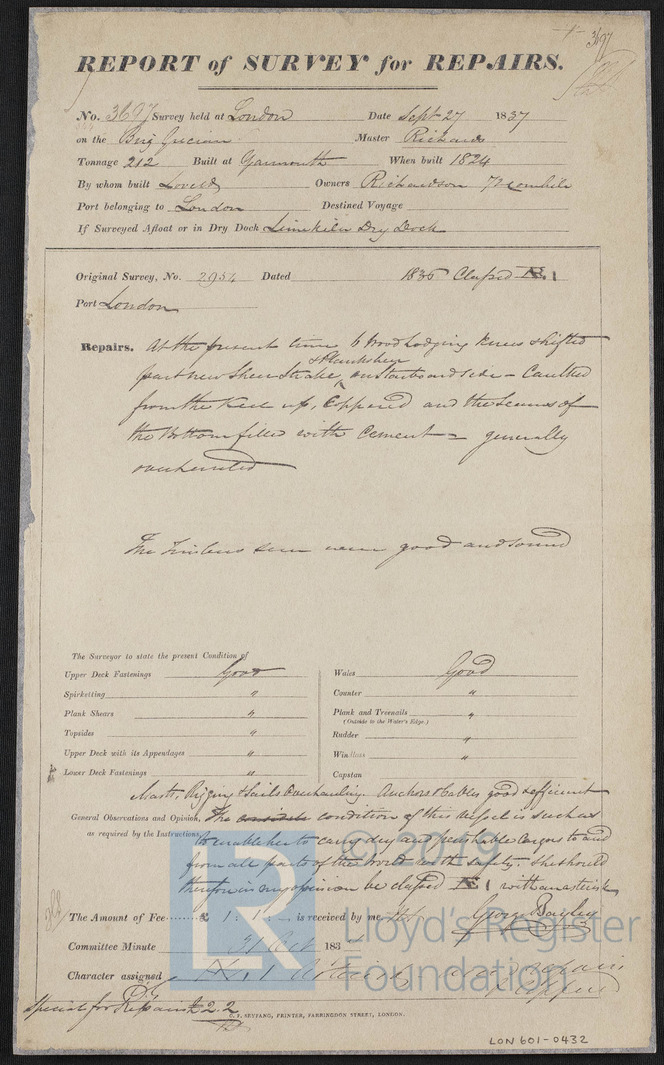 367
REPORT of SURVEY for REPAIRS.
No. 3697 Survey held at London Date Sept 27 1837
on the Brig Grecian Master Richards
Tonnage 212 Built at Yarmouth When built 1824
By whom built Owners Richardson
Port belonging to London Destined Voyage
If Surveyed Afloat or in Dry Dock Limekiln Dry Dock
Original Survey, No. 2954 Dated 1836 Classed Æ 1
Port London
Repairs. At the present time 6 Wood Lodging Knees shifted
& Planksheer
part new Sheer Strake, on Starboard side – Caulked
from the Keel up, Coppered and the Seams of
the Bottom filled with Cement – generally
overhauled
The Timbers seen were good and sound
The Surveyor to state the present Condition of
Upper Deck Fastenings Good
Spirketting "
Plank Shears "
Topsides "
Upper Deck with its Appendages "
Lower Deck Fastenings "
Wales Good
Counter "
Plank and Treenails "
(Outside to the Water's Edge.)
Rudder "
Windlass "
Capstan
Masts, Rigging & Sails Overhauling. Anchors & Cables good & efficient
General Observations and Opinion, The condition of this Vessel is such as
as required by the Instructions, to enable her to carry dry and perishable Cargoes to and
from all parts of the World with safety, She should
therefore in my opinion be classed Æ 1 with an asterisk
The Amount of Fee £ 1 : 1 : – is received by me George Bayley
Committee Minute 31 Oct 183
Character assigned
Special for Repairs £2.2
SEYFANG, PRINTER, FARRINGDON STREET, LONDON.
LON 601-0432
© 2019
LR
Lloyd's Register
Foundation